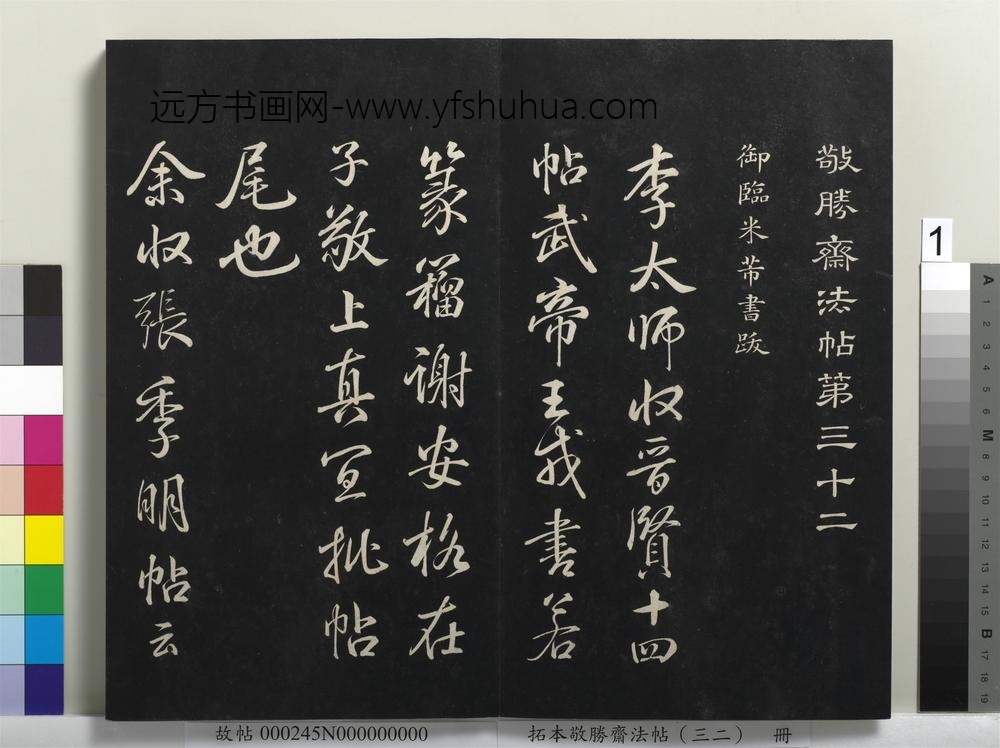 远方书画网-www.yfshuhua.com
敬勝齋法帖第三十二
御臨米芾書跋
李太師收晉賢十四
帖武帝王戎書若
篆籀謝安格在
子敬上真宜批帖
尾也
余收張季明帖云
1
A 1 2 3 4 5 6 M 8 9 10 11 12 13 14 15 B 17 18 19
故帖 000245N000000000
拓本敬勝齋法帖（三二） 冊